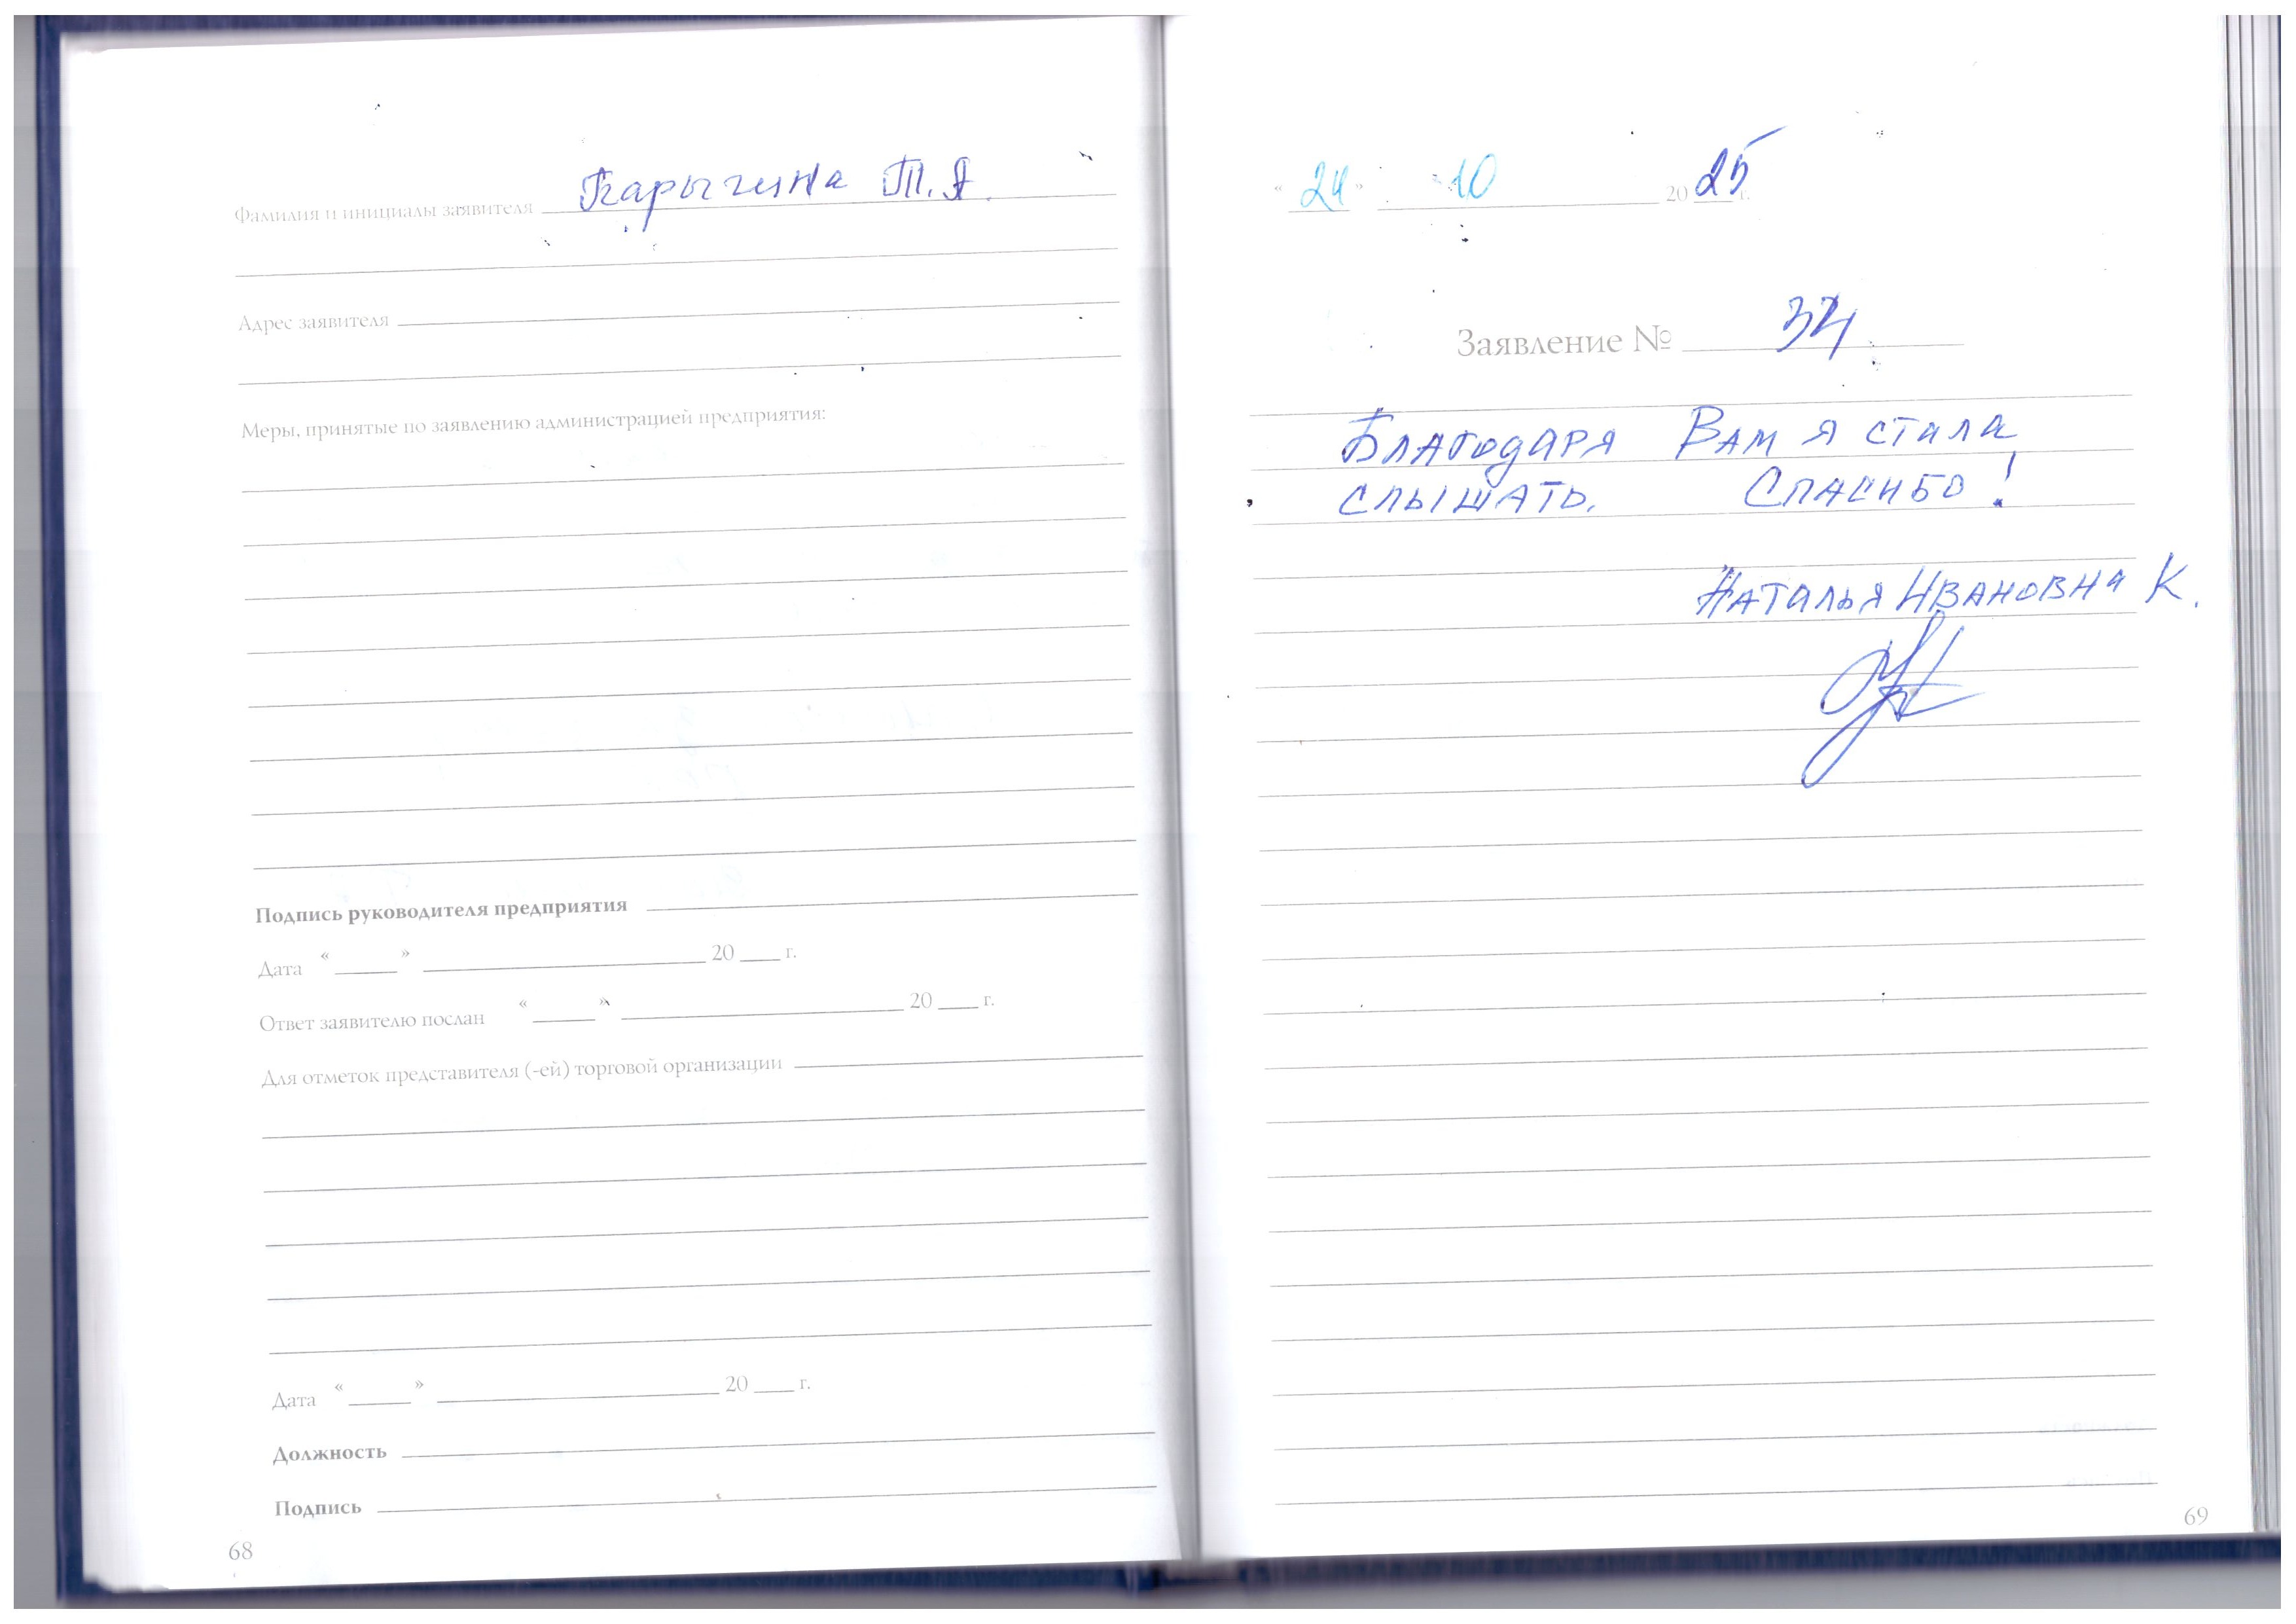 Фамилия и инициалы заявителя Карыгина Т.А.
Адрес заявителя
Меры, принятые по заявлению администрацией предприятия:
Подпись руководителя предприятия
Дата « » 20 г.
Ответ заявителю послан « » 20 г.
Для отметок представителя (-ей) торговой организации
Дата « » 20 г.
Должность
Подпись
68
« 24 » 10 20 25 г.
Заявление № 34
Благодаря Вам я стала
слышать. Спасибо!
Наталья Ивановна К.
69